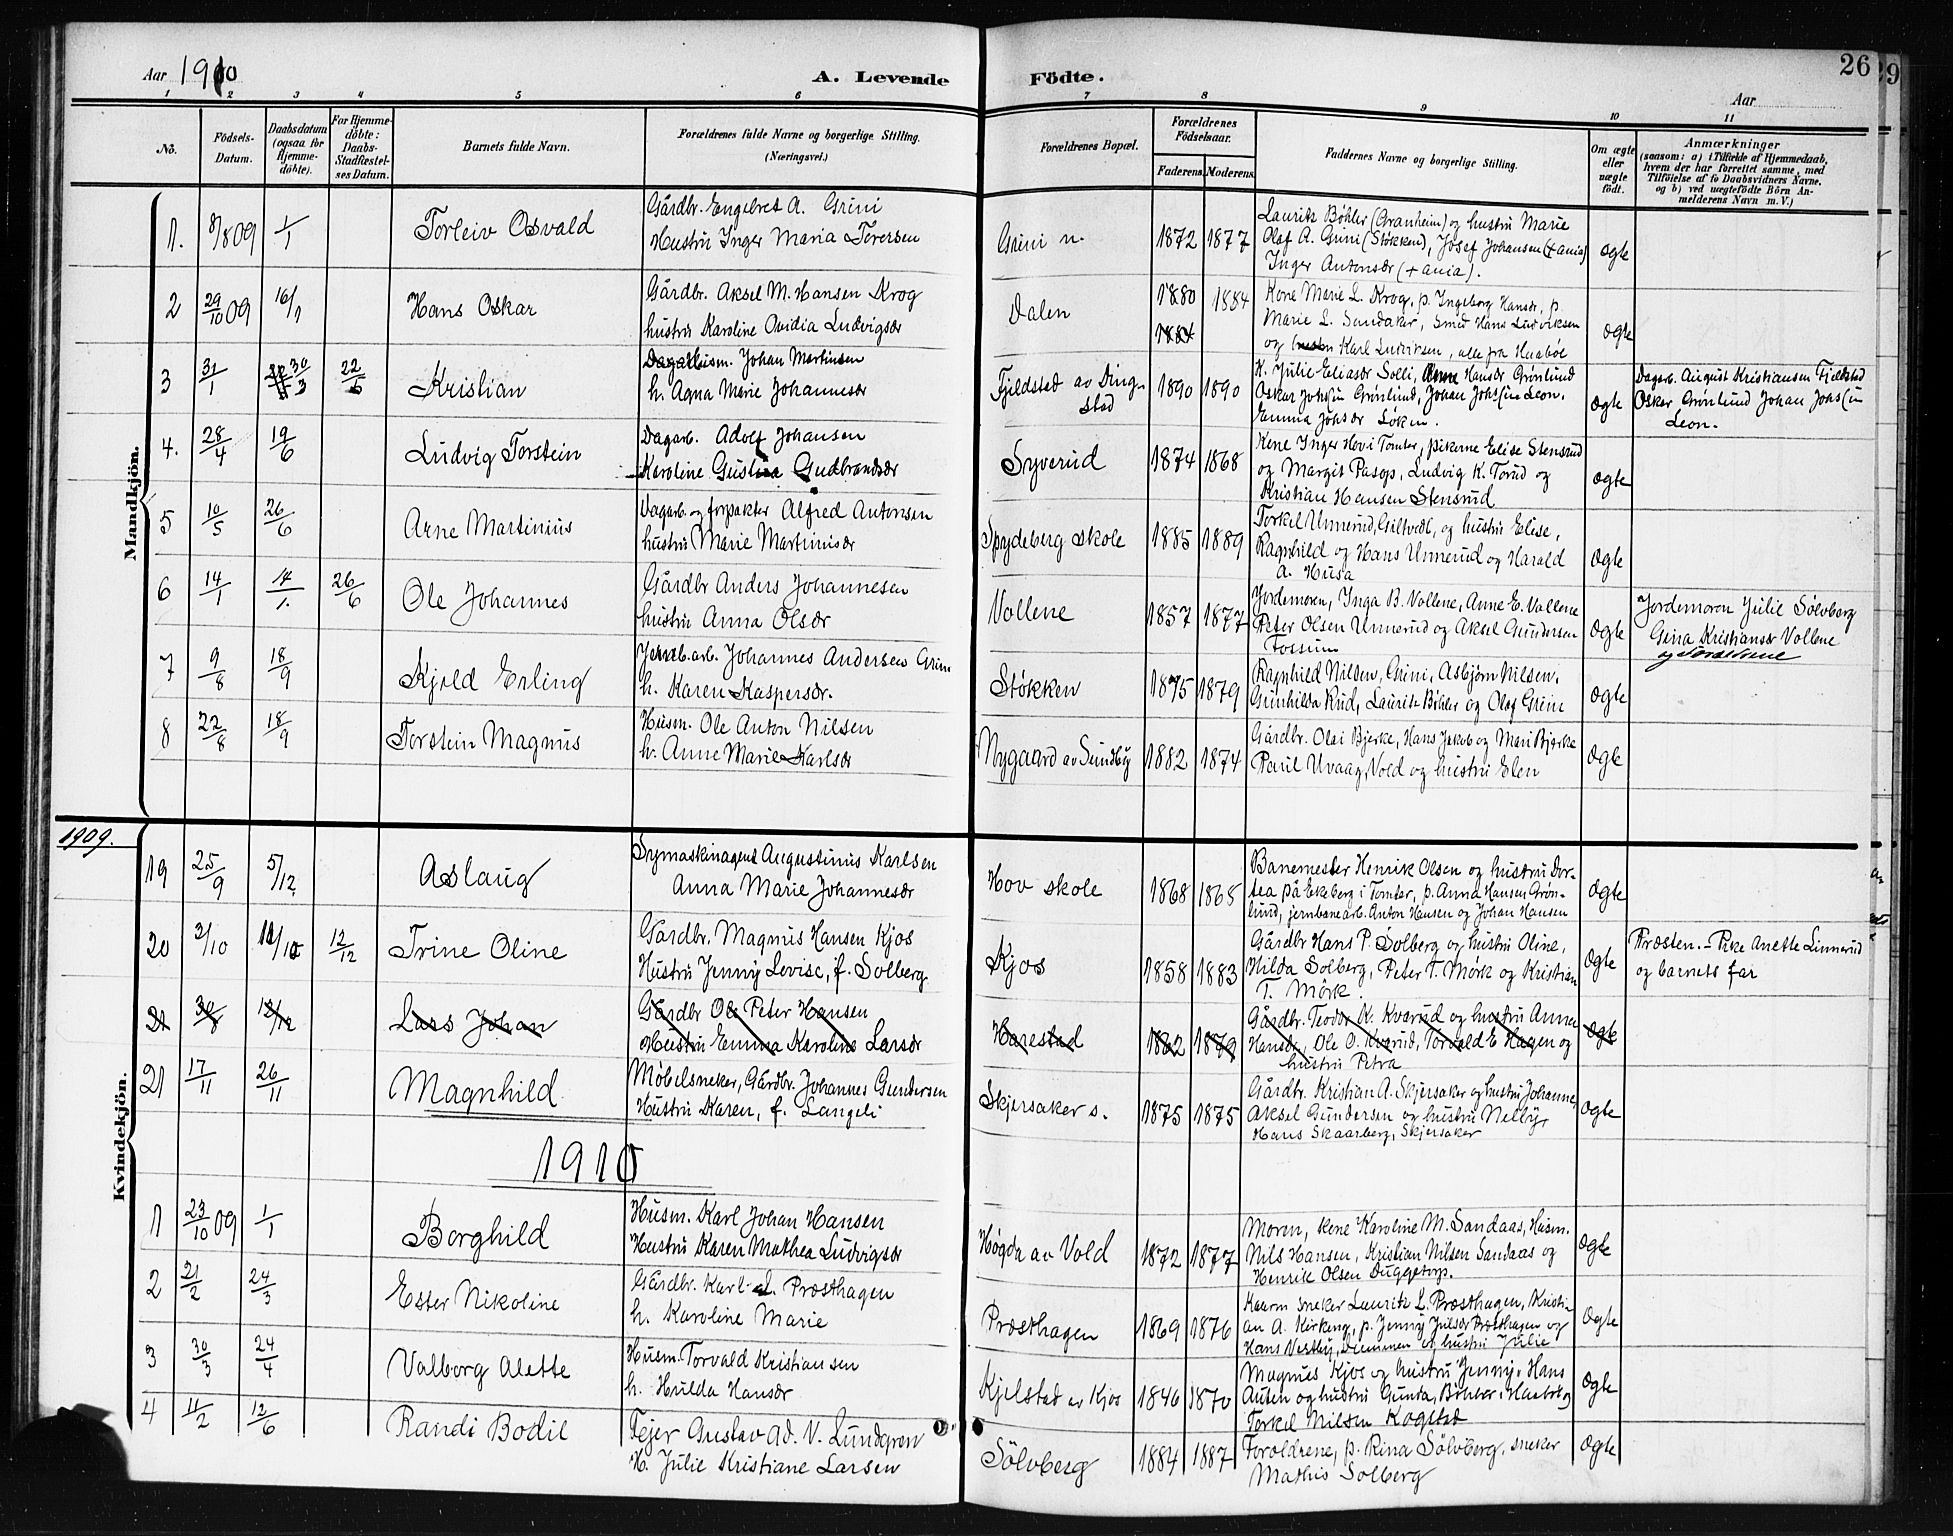 Aar 1910
A. Levende Födte.
26
29
Aar
1 2 3 4 5 6 7 8 9 10 11
No.
Födsels-Datum.
Daabsdatum (ogsaa for Hjemme-döbte).
For Hjemme-döbte: Daabs-Stadfæstel-ses Datum.
Barnets fulde Navn.
Forældrenes fulde Navne og borgerlige Stilling. (Næringsvei.)
Forældrenes Bopæl.
Forældrenes Födselsaar.
Faderens. Moderens.
Faddernes Navne og borgerlige Stilling.
Om ægte eller uægte födt.
Anmærkninger
(saasom: a) i Tilfælde af Hjemmedaab, hvem der har forrettet samme, med Tilföielse af to Daabsvidners Navne, og b) ved uægtefödte Börn An-melderens Navn m. V.)
Mandkjön.
1. 8/8 09 1/1 Torleiv Osvald
Gårdbr. Engebret A. Grini
Hustru Inger Maria Torersen
Grini n. 1872 1877
Laurits Böhler (Granheim) og hustru Marie
Olaf A. Grini (Støkken), Josef Johansen (+ ania)
Inger Antonsdr (+ ania).
Ægte
2 29/10 09 16/1 Hans Oskar
Gårdbr. Aksel M. Hansen Krog
hustru Karoline Ovidia Ludvigsdr
Dalen 1880 1884
1884
Kone Marie L. Krog, p. Ingeborg Hansdr, p.
Marie L. Sandaker, smed Hans Ludviksen
og Karl Ludviksen, alle fra Haabøl
Ægte
3 31/1 30/3 22/5 Kristian
Husm. Johan Martinsen
h. Agna Marie Johannesdr
Fjeldstad av Ding-
stad 1890 1890
K. Julie Eliasdr Solli, Hansdr Grønlund
Oskar Johs(en Grönlund, Johan Johs(en Leon.
Emma Johsdr Løken.
Ægte
Dagarb. August Kristiansen Fjeldstad
Oskar Grönlund Johan Johs(en
Leon.
4. 28/4 19/6 Ludvig Torstein
Dagarb. Adolf Johansen
Karoline Gustava Gudbrandsdr
Syverud 1874 1868
Kone Inger Hovi Tomter, pikerne Elise Stensrud
og Margit Pasop, Ludvig K. Torud og
Kristian Hansen Stensrud
Ægte
5 10/5 26/6 Arne Martinius
Dagarb. og forpakter Alfred Antonsen
hustru Marie Martinisdr
Spydeberg skole 1885 1889
Torkel Unnerud, Giltvedt, og hustru Elise,
Ragnhild og Hans Unnerud og Harald
A. Husa
Ægte
6 14/1 14/1. 26/6 Ole Johannes
Gårdbr Anders Johannesen
hustru Anna Olsdr
Vollene 1857 1877
Jordemoren, Inga B. Vollene, Anne E. Vollene
Peter Olsen Unnerud og Aksel Gundersen
Fossum
Ægte
Jordemoren Julie Sölvberg
Gina Kristiansdr Vollene
og Forældrene
7 9/8 18/9 Kjeld Erling
Jernb.arb. Johannes Andersen Grini
h. Karen Kaspersdr.
Støkken 1875 1879
Ragnhild Nilsen, Grini, Asbjørn Nilsen,
Gunhilda Rud, Laurits Böhler og Olaf Grini
Ægte
8 22/8 18/9 Torstein Magnus
Husm. Ole Anton Nilsen
h. Anne Marie Karlsdr
Nygaard av Sundby 1882 1874
Gårdbr. Olai Bjerke, Hans Jakob og Mari Bjerke
Paul Uvaag, Vold og hustru Elen
Ægte
1909.
Kvindekjön.
19 25/9 5/12 Aslaug
Symaskinagent Augustinus Karlsen
Anna Marie Johannesdr
Hov skole 1868 1865
Banemester Henrik Olsen og hustru Dor-
tea på Ekeberg i Tomter, p. Anna Hansen Grøn-
lund, jernbanearb. Anton Hansen og Johan Hansen
Ægte
20 2/10 10/10 12/12 Trine Oline
Gårdbr. Magnus Hansen Kjos
Hustru Jenny Lovise, f. Solberg
Kjos 1858 1883
Gårdbr Hans P. Solberg og hustru Oline,
Hilda Solberg, Peter T. Mørk og Kristian
T. Mörk.
Ægte
Præsten. - Pike Anette Linnerud
og barnets far
21 30/8 12/12 Lars Johan
Gårdbr Ole Peter Hansen
Hustru Emma Karoline Larsdr
Harestad 1882 1879
Gårdbr. Teodor K. Kverud og hustru Anna
Hansdr, Ole O. Kverud, Torvald E Hagen og
hustru Petra
Ægte
21 17/11 26/11 Magnhild
Møbelsneker, Gårdbr. Johannes Gundersen
Hustru Karen, f. Langeli
Skjersaker s. 1875 1875
Gårdbr. Kristian A. Skjersaker og hustru Johanne,
Aksel Gundersen og hustru Nelly,
Hans Skaarberg, Skjersaker
Ægte
1910
1 23/10 09 1/1 Borghild
Husm. Karl Johan Hansen
Hustru Karen Mathea Ludvigsdr
Høgda av Vold 1872 1877
Moren, kone Karoline M. Sandaas, Husm.
Nils Hansen, Kristian Nilsen Sandaas og
Henrik Olsen Duggetorp.
Ægte
2 21/2 24/3 Ester Nikoline
Gårdbr. Karl L. Præsthagen
h. Karoline Marie
Præsthagen 1869 1876
sneker Laurits L. Præsthagen, Kristi-
an A. Kirkeng, p. Jenny Julsdr Præsthagen og
Hans Vestby, Dammen og hustru Julie
Ægte
3 30/3 24/4 Valborg Alette
Husm. Torvald Kristiansen
h. Hulda Hansdr
Kjelstad av Kjos 1846 1870
Magnus Kjos og hustru Jenny, Hans
Auten og hustru Gunda, Böhler i Haabøl og
Torkel Nilsen Kogstad
Ægte
4 11/2 12/6 Randi Bodil
Fejer Gustav Ad. V. Lundgren
H. Julie Kristiane Larsen
Sölvberg 1884 1887
Forældrene, p. Rina Sölvberg, sneker
Mathis Solberg
Ægte